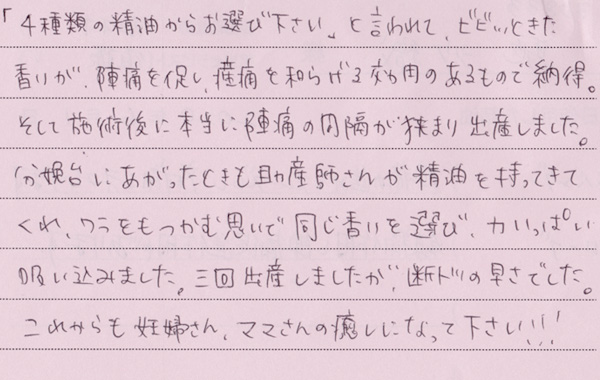 「4種類の精油からお選び下さい」と言われて、ビビッときた
香りが、陣痛を促し、産痛を和らげる効用のあるもので納得。
そして施術後に本当に陣痛の間隔が狭まり出産しました。
分娩台にあがったときも助産師さんが精油を持ってきて
くれ、ワラをもつかむ思いで同じ香りを選び、力いっぱい
吸い込みました。三回出産しましたが、断トツの早さでした。
これからも妊婦さん、ママさんの癒しになって下さい!!!